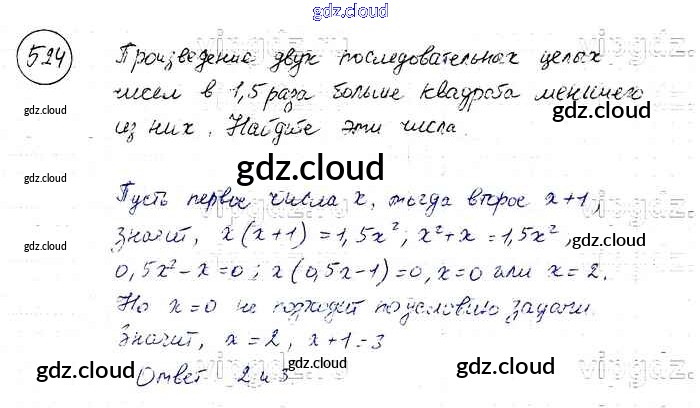 gdz.cloud
524 Произведение двух последовательных целых
gdz.cloud чисел в 1,5 раза больше квадрата меньшего
gdz.cloud
из них. Найдите эти числа.
gdz.cloud
gdz.cloud
Пусть первое числа x, тогда второе x+1,
gdz.cloud
значит, x(x+1)=1,5x²; x²+x=1,5x²,
gdz.cloud
0,5x²-x=0; x(0,5x-1)=0, x=0 или x=2.
gdz.cloud
Но x=0 не подходит по условию задачи.
Значит, x=2, x+1=3
gdz.cloud gdz.cloud gdz.cloud
Ответ 2 и 3